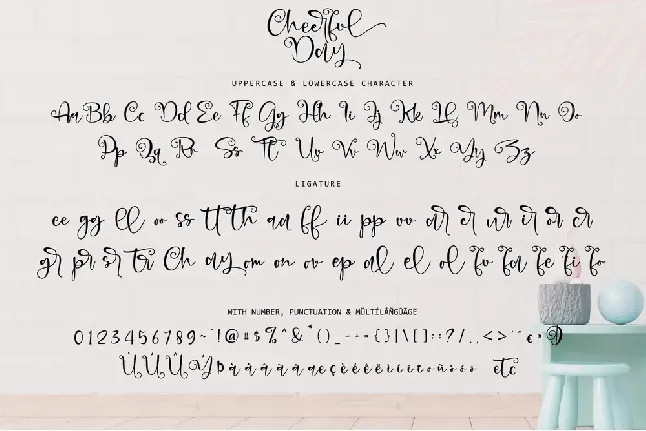 Cheerful
Day
UPPERCASE & LOWERCASE CHARACTER
Aa Bb Cc Dd Ee Ff Gg Hh Ii Jj Kk Ll Mm Nn Oo
Pp Qq Rr Ss Tt Uu Vv Ww Xx Yy Zz
LIGATURE
ee gg ll oo ss tt th aa ff ii pp ar er ir or
gr pr sr tr Ch ay om on ov ep al el ol fu fa fe fi fo
WITH NUMBER, PUNCTUATION & MÜLTÍLÂÑGÛÄGE
0123456789 ~ ! @ # $ % ^ & * ( ) _ - - = { } | \ [ ] : ; ? / . , < >
etc